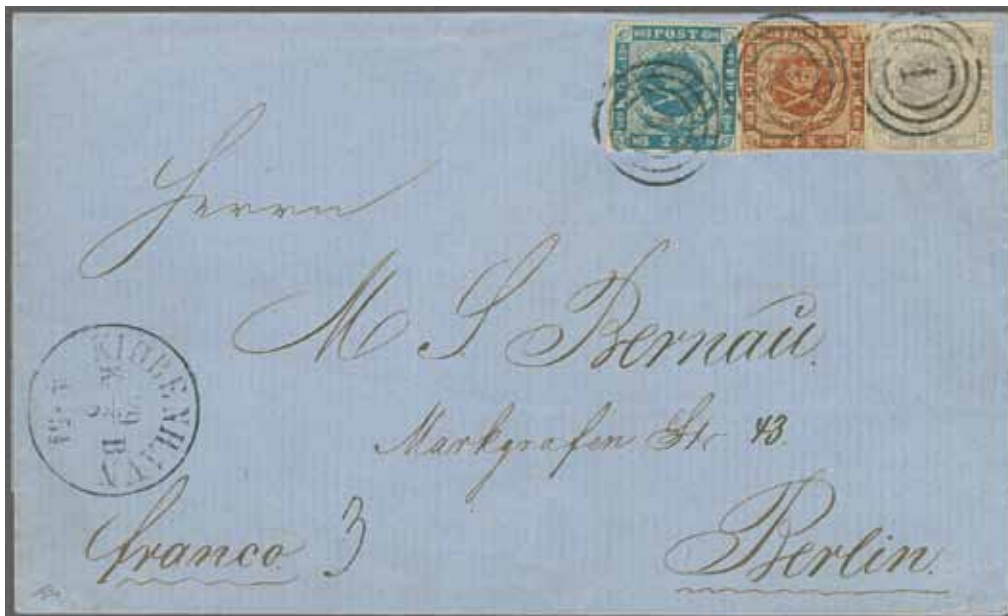 POST
2 S
4 S
1
Herrn
M S Bernau.
Markgrafen Str 43.
KIØBENHAVN
franco 3
Berlin.